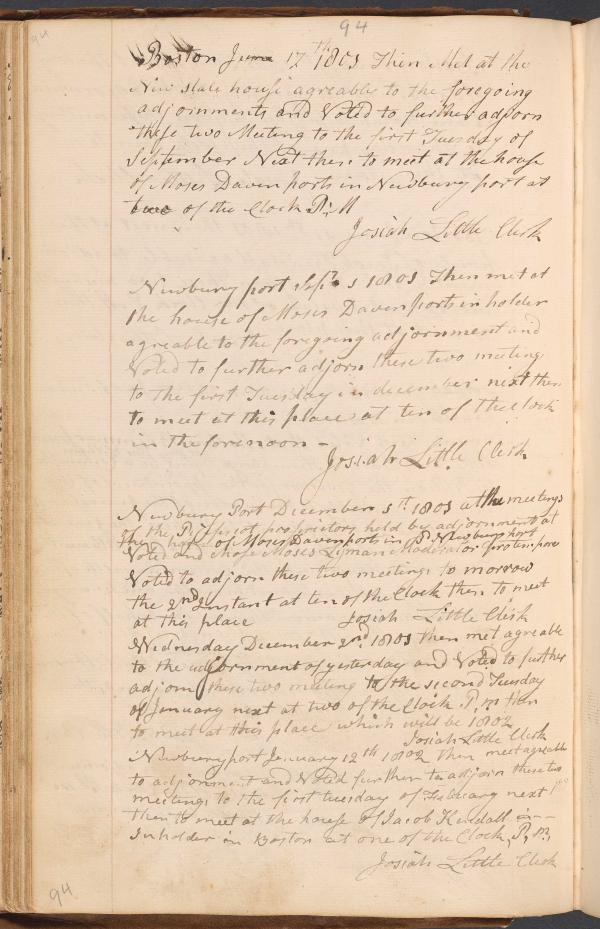 94
94
Boston June 17th 1801 Then Met at the
New state house agreable to the foregoing
adjornments and Voted to further adjorn
these two Meeting to the first Tuesday of
September Next then to meet at the house
of Moses Davenports in Newbury port at
two of the Clock P, M
Josiah Little Clerk
Newbury port Sept 1 1801 Then met at
the house of Moses Davenports inholder
agreable to the foregoing adjornment and
Voted to further adjorn these two meetings
to the first Tuesday in december next then
to meet at this place at ten of the clock
in the forenoon -
Josiah Little Clerk
Newbury Port December 1st 1801 at the meetings
of the Pejepscot proprietory held by adjornment at
the house of Moses Davenports in Newbury port
Voted and chose Moses Lyman Moderator protempore
Voted to adjorn these two meetings to morrow
the 2nd Instant at ten of the Clock then to meet
at this place Josiah Little Clerk
Wednesday December 2nd 1801 then met agreable
to the adjornment of yesterday and Voted to further
adjorn these two meeting to the second Tuesday
of January next at two of the Clock P, m then
to meet at this place which will be 1802
Josiah Little Clerk
Newbury port January 12th 1802 then meet agreable
to adjornment and Voted further to adjorn these two
meetings to the first tuesday of February next
then to meet at the house of Jacob Kendall in-
Inholder in Boston at one of the Clock, P, m,
Josiah Little Clerk
94